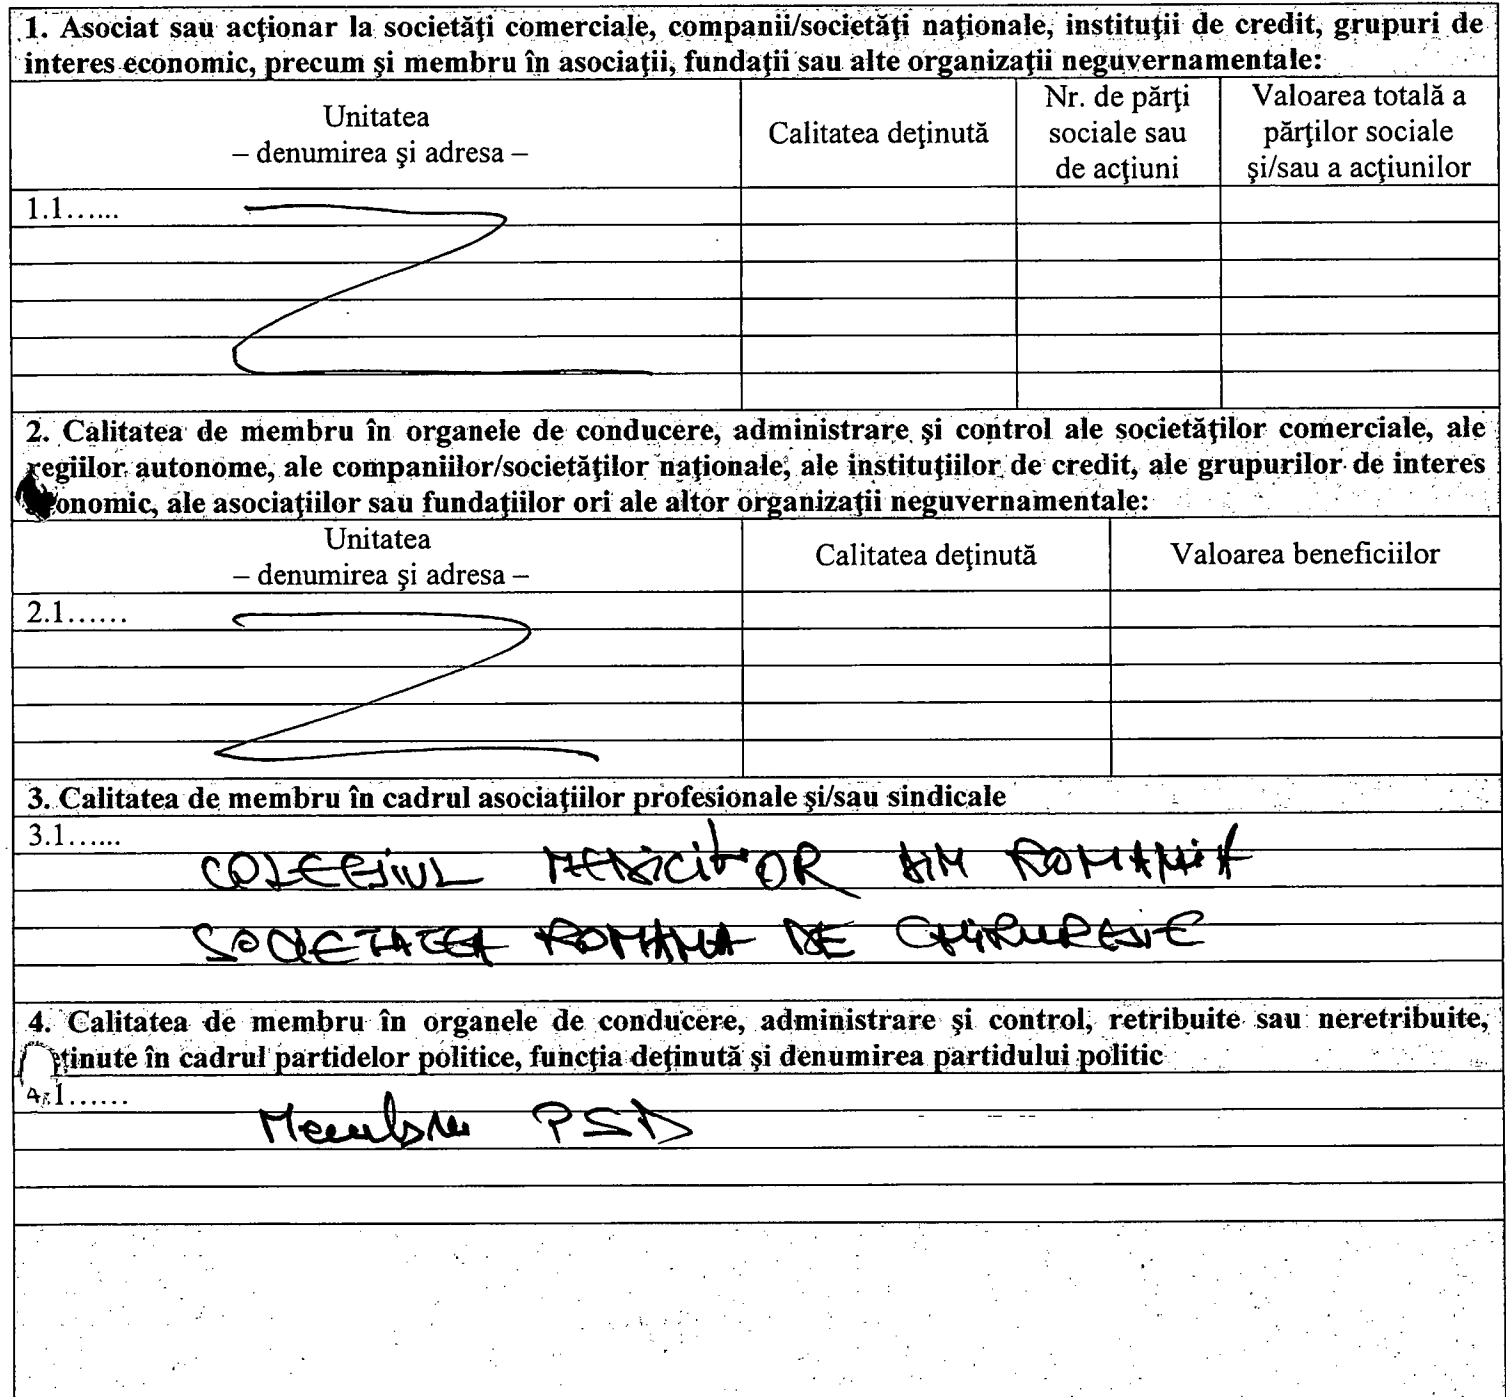 1. Asociat sau acţionar la societăţi comerciale, companii/societăţi naţionale, instituţii de credit, grupuri de
interes economic, precum şi membru în asociaţii, fundaţii sau alte organizaţii neguvernamentale:
Unitatea
– denumirea şi adresa –
Calitatea deţinută
Nr. de părţi
sociale sau
de acţiuni
Valoarea totală a
părţilor sociale
şi/sau a acţiunilor
1.1......
2. Calitatea de membru în organele de conducere, administrare şi control ale societăţilor comerciale, ale
regiilor autonome, ale companiilor/societăţilor naţionale, ale instituţiilor de credit, ale grupurilor de interes
onomic, ale asociaţiilor sau fundaţiilor ori ale altor organizaţii neguvernamentale:
Unitatea
– denumirea şi adresa –
Calitatea deţinută
Valoarea beneficiilor
2.1......
3. Calitatea de membru în cadrul asociaţiilor profesionale şi/sau sindicale
3.1......
COLEGIUL MEDICILOR DIN ROMANIA
SOCIETATEA ROMANA DE CHIRURGIE
4. Calitatea de membru în organele de conducere, administrare şi control, retribuite sau neretribuite,
ţinute în cadrul partidelor politice, funcţia deţinută şi denumirea partidului politic
4.1......
Membru PSD